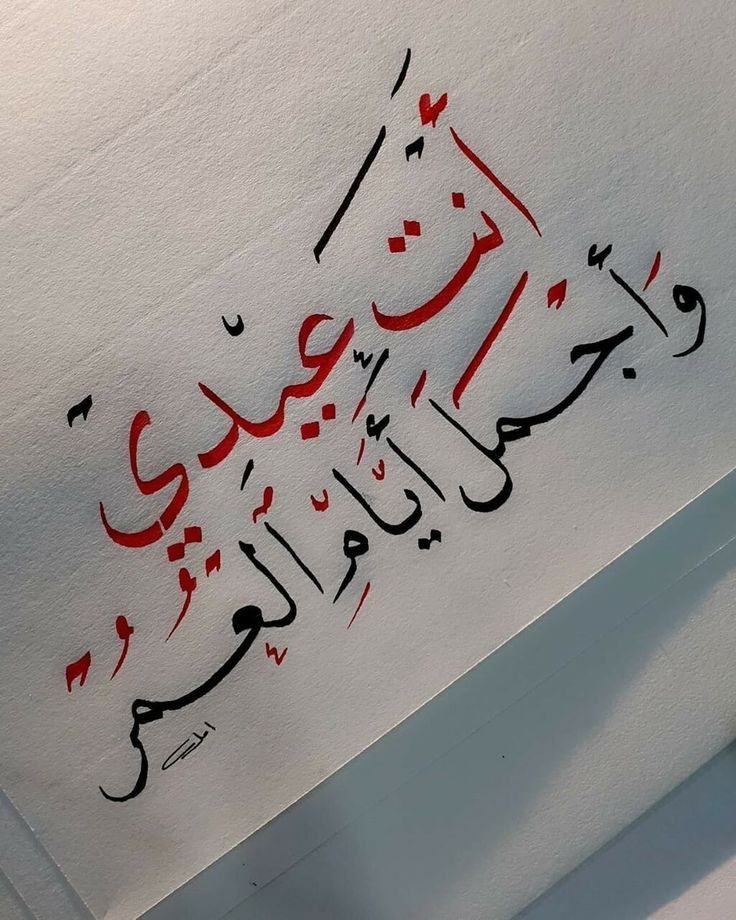 أنتَ عيْدي
وَأجْمَل أيَّامِ العمر